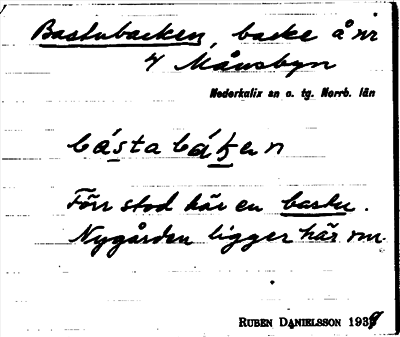 Bastubacken, backe å nr
4 Månsbyn
Nederkalix sn o. tg. Norrb. län
básta bák̲en
Förr stod här en bastu.
Nygården ligger här nu.
RUBEN DANIELSSON 1939